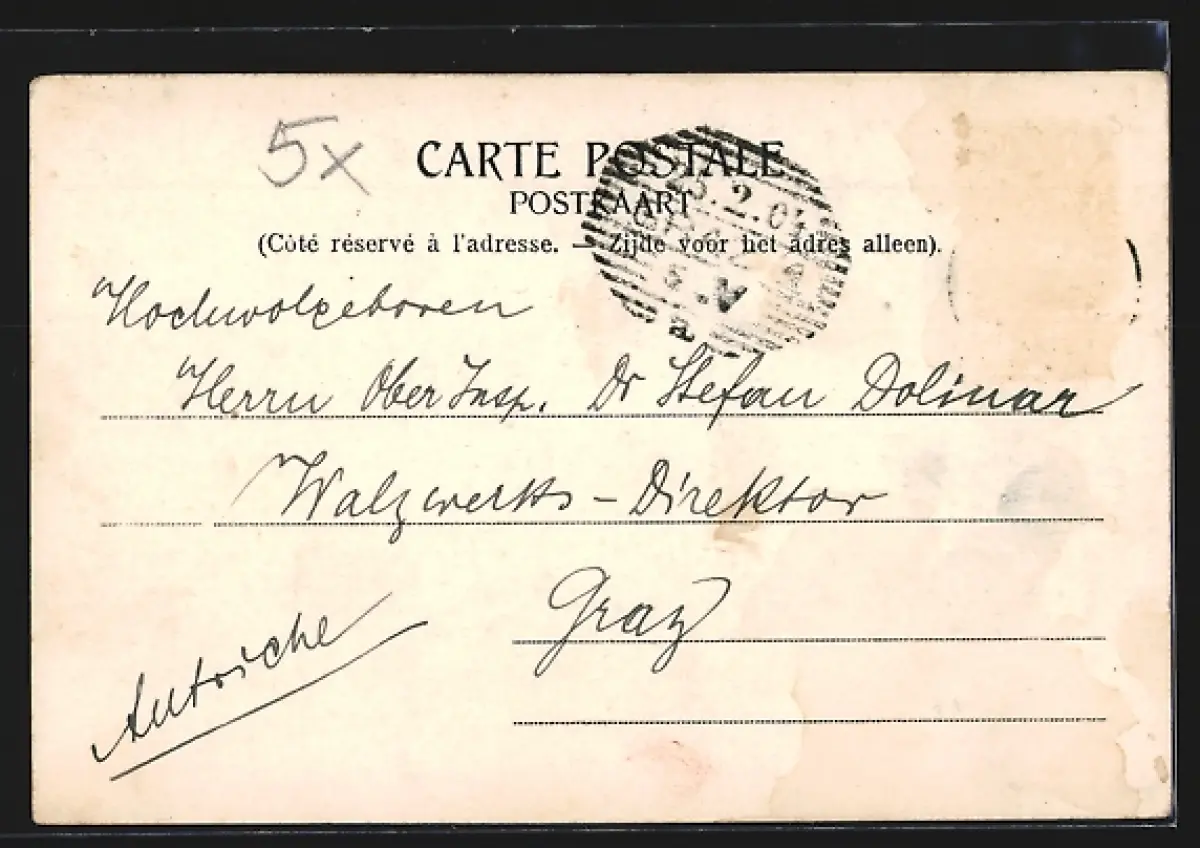 5x
CARTE POSTALE
POSTKAART
(Côté réservé à l'adresse. — Zijde voor het adres alleen).
2.04
Hochwolgeboren
Herrn Ober Insp. Dr Stefan Dolinar
Walzwerks-Direktor
Graz
Autriche